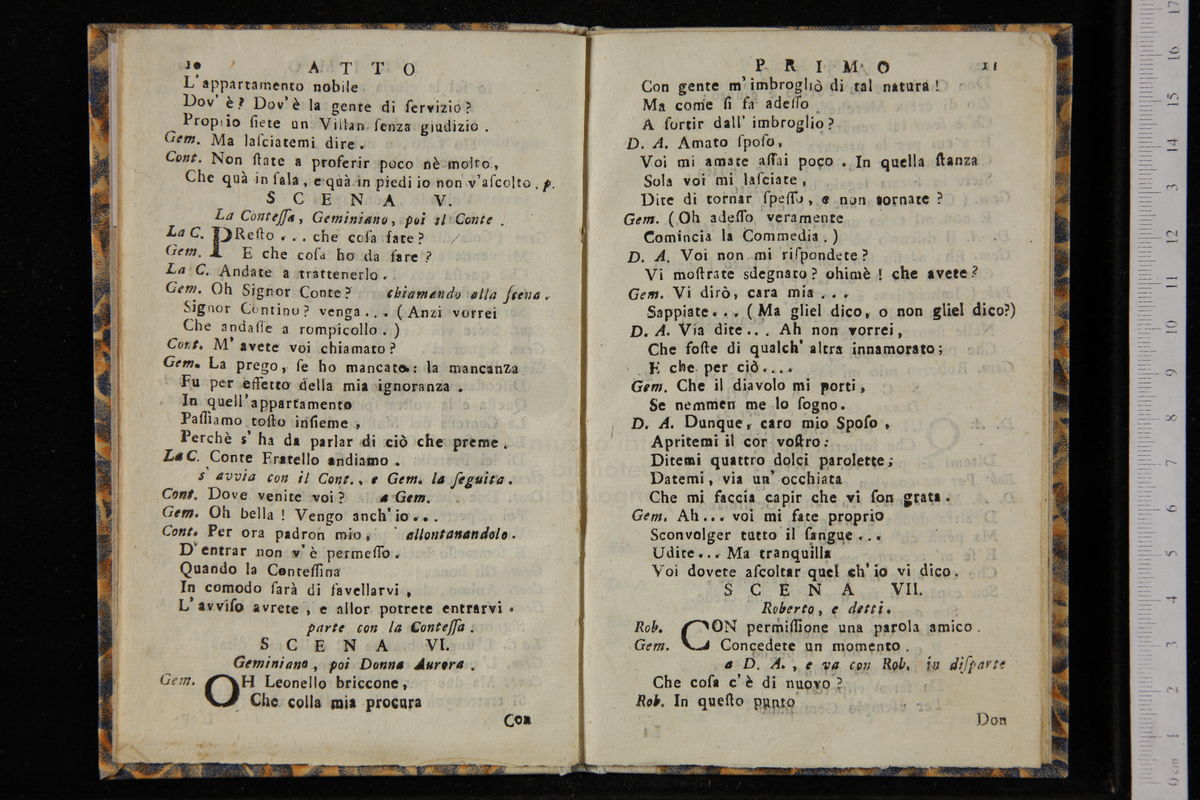 10 ATTO
L'appartamento nobile
Dov' è? Dov'è la gente di ſervizio?
Proprio ſiete un Villan ſenza giudizio.
Gem. Ma laſciatemi dire.
Cont. Non ſtate a proferir poco nè molto,
Che quà in ſala, e quà in piedi io non v'aſcolto. p.
SCENA V.
La Conteſſa, Geminiano, poi il Conte.
La C. PReſto... che coſa fate?
Gem. E che coſa ho da fare?
La C. Andate a trattenerlo.
Gem. Oh Signor Conte? chiamando alla ſcena.
Signor Contino? venga... (Anzi vorrei
Che andaſſe a rompicollo.)
Cont. M' avete voi chiamato?
Gem. La prego, ſe ho mancato: la mancanza
Fu per effetto della mia ignoranza.
In quell'appartamento
Paſſiamo toſto inſieme,
Perchè s' ha da parlar di ciò che preme.
La C. Conte Fratello andiamo.
s' avvia con il Cont., e Gem. la ſeguita.
Cont. Dove venite voi? a Gem.
Gem. Oh bella! Vengo anch'io...
Cont. Per ora padron mio, allontanandolo.
D'entrar non v'è permeſſo.
Quando la Conteſſina
In comodo ſarà di favellarvi,
L'avviſo avrete, e allor potrete entrarvi.
parte con la Conteſſa.
SCENA VI.
Geminiano, poi Donna Aurora.
Gem. OH Leonello briccone,
Che colla mia procura
Con
PRIMO 11
Con gente m'imbrogliò di tal natura!
Ma come ſi fa adeſſo
A ſortir dall' imbroglio?
D. A. Amato ſpoſo,
Voi mi amate aſſai poco. In quella ſtanza
Sola voi mi laſciate,
Dite di tornar ſpeſſo, e non tornate?
Gem. (Oh adeſſo veramente
Comincia la Commedia.)
D. A. Voi non mi riſpondete?
Vi moſtrate sdegnato? ohimè! che avete?
Gem. Vi dirò, cara mia...
Sappiate... (Ma gliel dico, o non gliel dico?)
D. A. Via dite... Ah non vorrei,
Che foſte di qualch' altra innamorato;
E che per ciò....
Gem. Che il diavolo mi porti,
Se nemmen me lo ſogno.
D. A. Dunque, caro mio Spoſo,
Apritemi il cor voſtro:
Ditemi quattro dolci parolette;
Datemi, via un' occhiata
Che mi faccia capir che vi ſon grata.
Gem. Ah... voi mi fate proprio
Sconvolger tutto il ſangue...
Udite... Ma tranquilla
Voi dovete aſcoltar quel ch'io vi dico.
SCENA VII.
Roberto, e detti.
Rob. CON permiſſione una parola amico.
Gem. Concedete un momento.
a D. A., e va con Rob. in diſparte
Che coſa c'è di nuovo?
Rob. In queſto punto
Don
17
16
15
14
13
12
11
10
9
8
7
6
5
4
3
2
1
0 cm